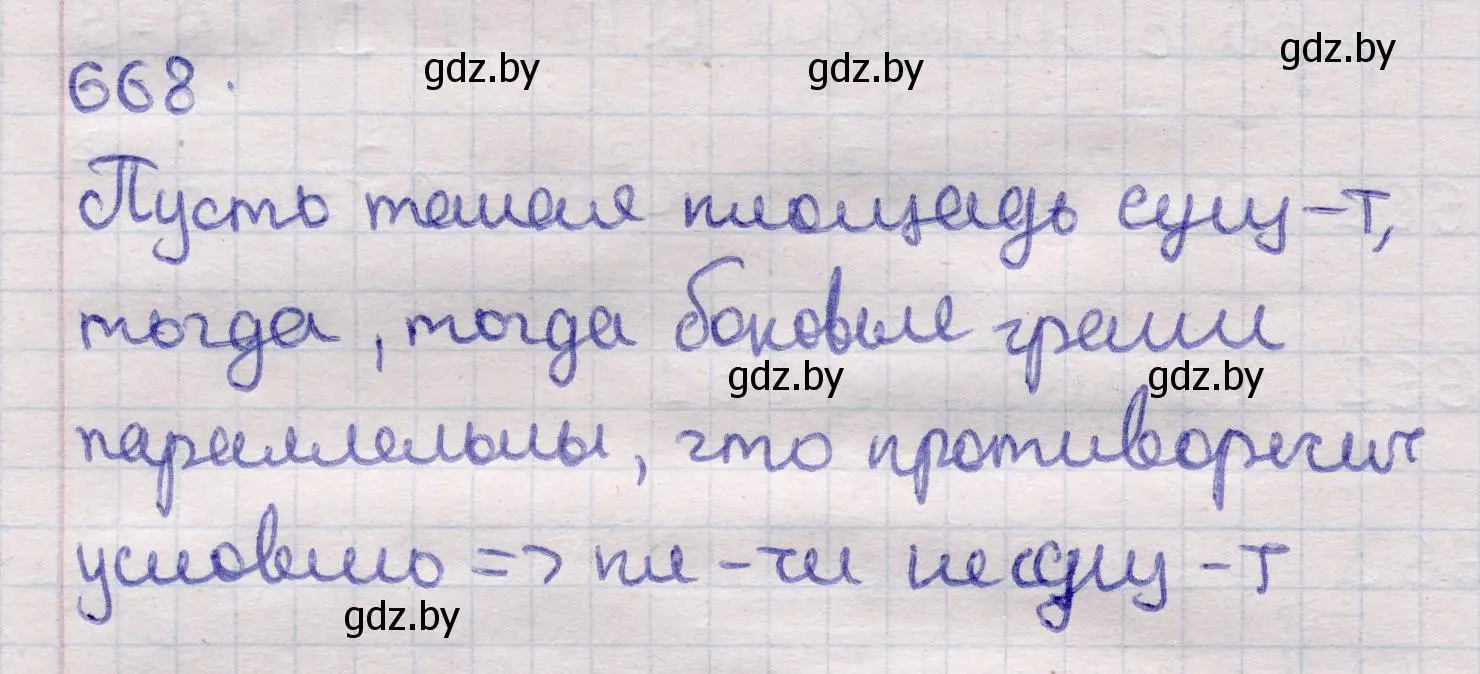 gdz.by gdz.by gdz.by
668.
Пусть такая площадь сущ-т,
тогда, тогда боковые грани
gdz.by gdz.by
параллельны, что противоречит
условию => пл-ди не сущ-т
gdz.by